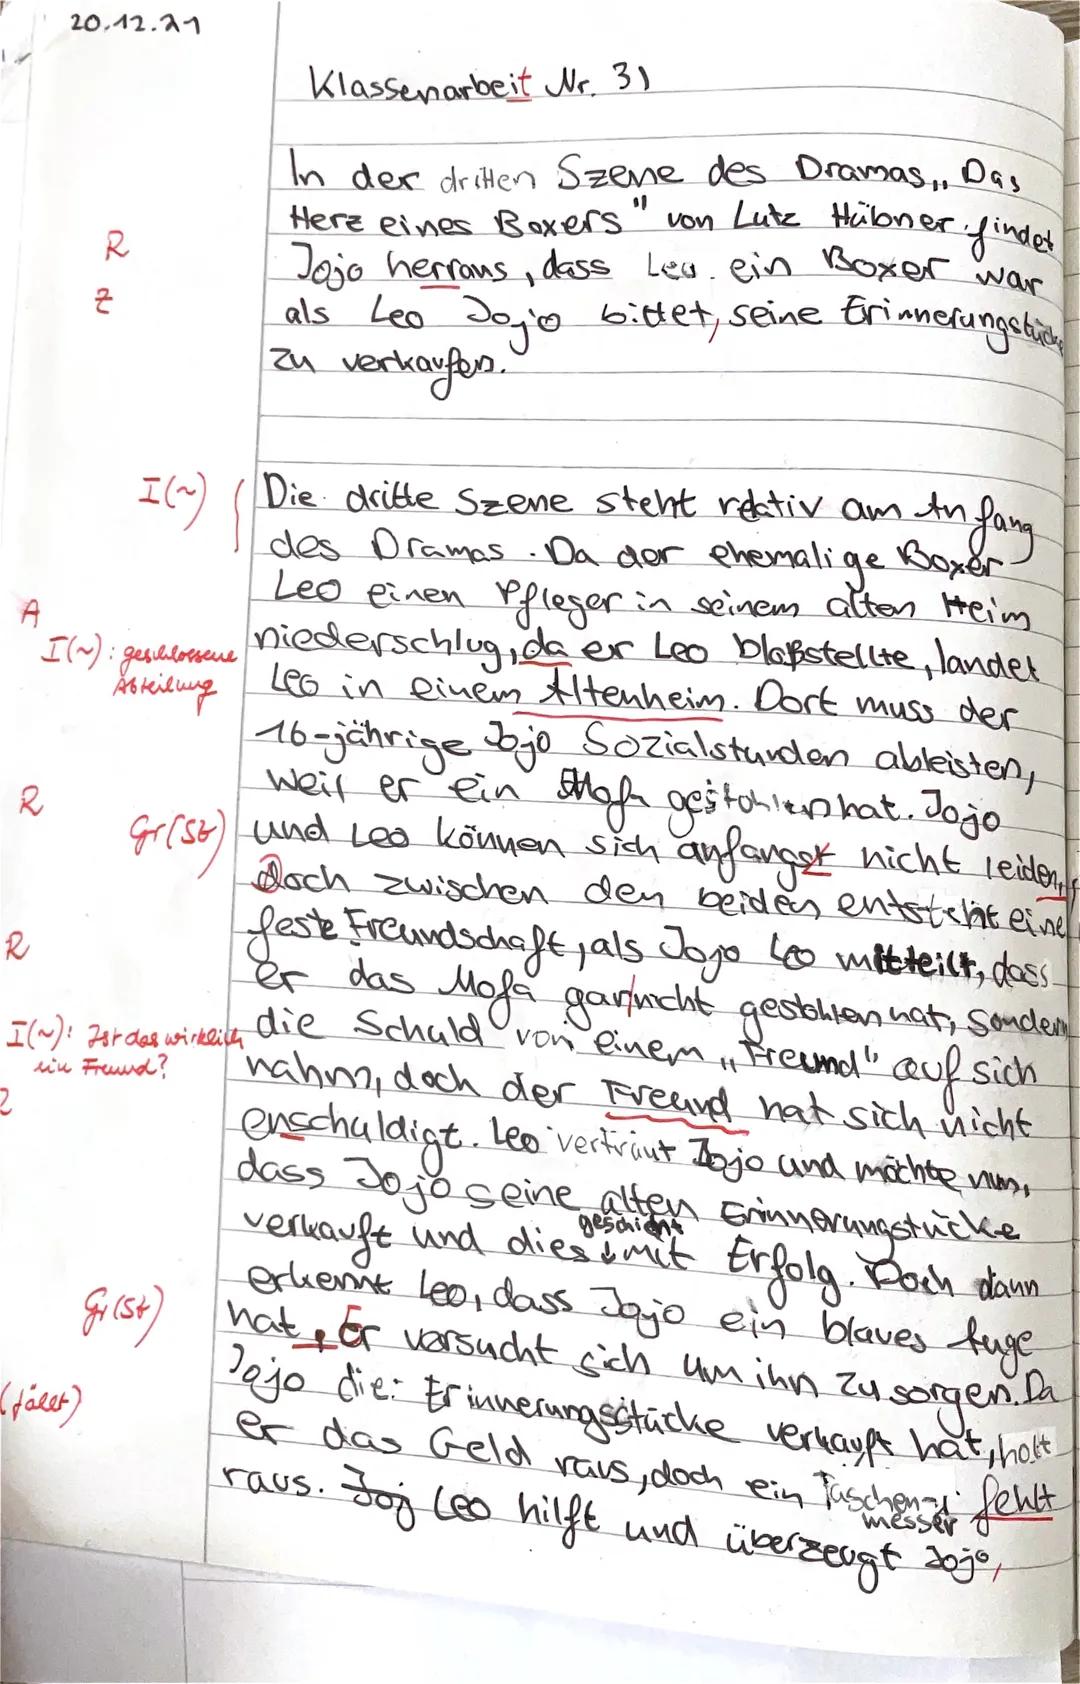 20.12.21
Klassenarbeit Nr. 3)
In der dritten Szene des Dramas „Das
Herz eines Boxers" von Lutz Hübner findet
R
Jojo herraus, dass Leo ein Boxer war
Z
als Leo Jojo bittet, seine Erinnerungstücke
zu verkaufen.
I(~)
Die dritte Szene steht relativ am Anfang
des Dramas. Da der ehemalige Boxer
Leo einen Pfleger in seinem alten Heim
A
niederschlug, da er Leo bloßstellte, landet
I(~): geschlossene
Abteilung
Leo in einem Altenheim. Dort muss der
16-jährige Jojo Sozialstunden ableisten,
weil er ein Mofa gestohlen hat. Jojo
R
Gr(St)
und Leo können sich anfangst nicht leiden,
doch zwischen den beiden entsteht eine
feste Freundschaft, als Jojo Leo mitteilt, dass
R
er das Mofa garnicht gestohlen hat, sondern
I(~): Ist das wirklich
ein Freund?
die Schuld von einem „Freund" auf sich
nahm, doch der Freund hat sich nicht
R
enschuldigt. Leo vertraut Jojo und möchte nun,
dass Jojo seine alten Erinnerungstücke
verkauft und dies geschieht mit Erfolg. Doch dann
erkennt Leo, dass Jojo ein blaues Auge
Gr(St)
hat, Er versucht sich um ihn zu sorgen. Da
Jojo die Erinnerungsstücke verkauft hat, holt
(fällt)
er das Geld raus, doch ein Taschenmesser fehlt
raus. Joj Leo hilft und überzeugt Jojo,